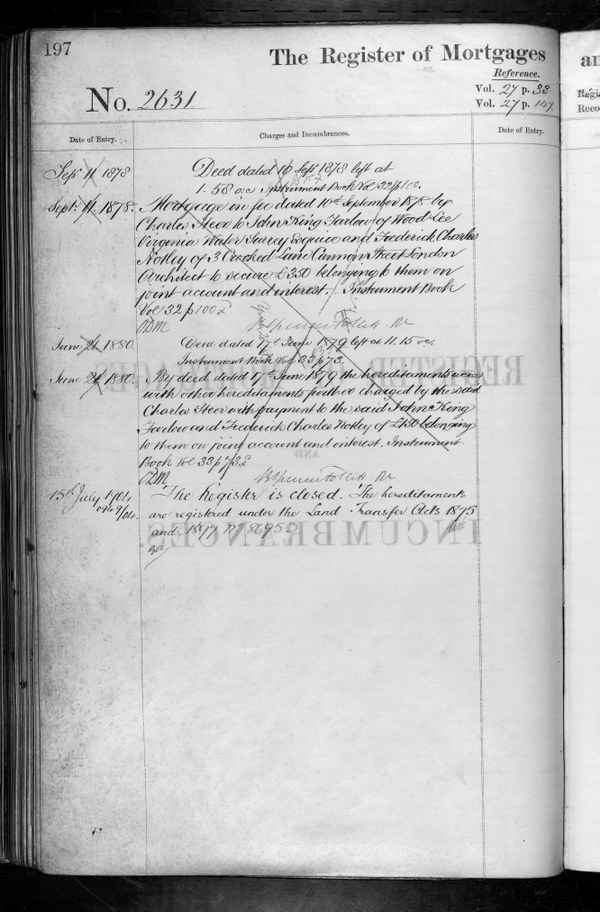 197
The Register of Mortgages
an
Reference.
No. 2631
Vol. 27 p. 33
Vol. 27 p. 147
Regis
Reco
Date of Entry.
Charges and Incumbrances.
Date of Entry.
Sepr 11 1878
Deed dated 10 Sepr 1878 left at
1.58 o.c Instrument Book Vol 32 p 100.
Septr 11. 1878.
Mortgage in fee dated 10th September 1878 by
Charles Steer to John King Farlow of Wood Lee
Virginia Water Surrey Esquire and Frederick Charles
Notley of 3 Crooked Lane Cannon Street London
Architect to secure £350 belonging to them on
joint account and interest. Instrument Book
Vol 32 p 100
B Spencer Follett
June 21 1880
Deed dated 17th June 1879 left at 11.15 o.c.
Instrument Book Vol 33 p 73.
June 21 1880.
By deed dated 17th June 1879 the hereditaments were
with other hereditaments further charged by the said
Charles Steer with payment to the said John King
Farlow and Frederick Charles Notley of £150 belonging
to them on joint account and interest. Instrument
Book Vol 33 p 73
B Spencer Follett
15th July 1901
The Register is closed. The hereditaments
are registered under the Land Transfer Acts 1875
and 1897 No 86952
REGISTER
AND
INCUMBRANCES.